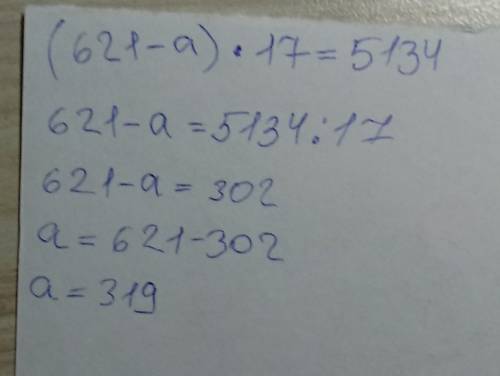 (621-a) • 17 = 5134
621-a = 5134:17
621-a = 302
a = 621-302
a = 319